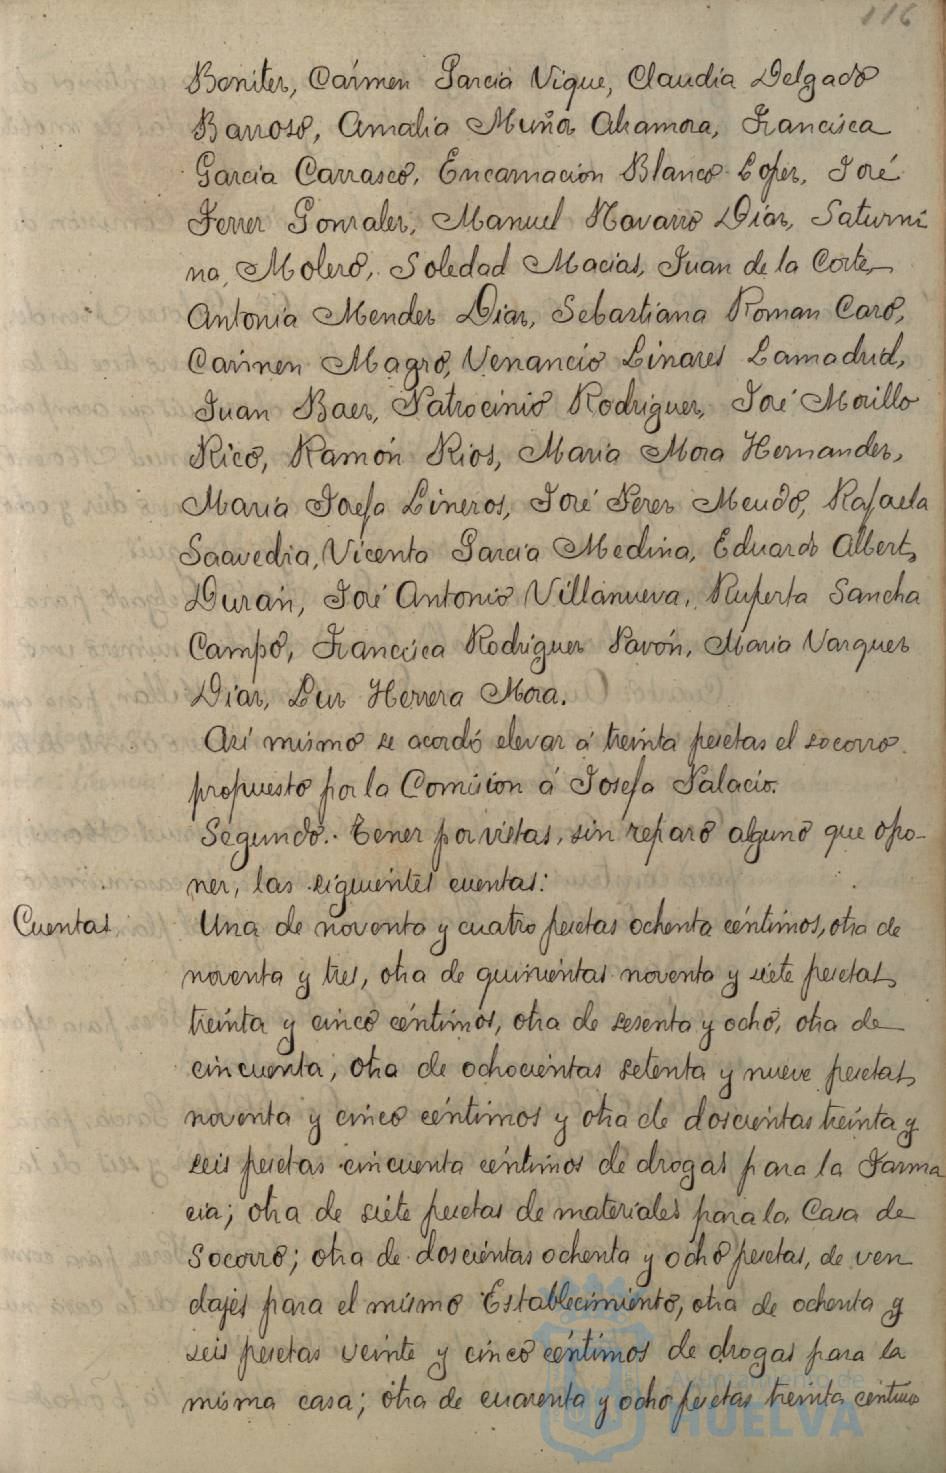 116
Benitez, Cármen Garcia Vique, Claudia Delgado
Barroso, Amalia Muñoz Alcamora, Francisca
Garcia Carrasco, Encarnacion Blanco Lopez, José
Ferrer Gonzalez, Manuel Navarro Diaz, Saturni
na Molero, Soledad Macias, Juan de la Corte,
Antonia Mendez Diaz, Sebastiana Roman Caro,
Cármen Magro, Venancio Linares Lamadrid,
Juan Baez, Patrocinio Rodriguez, José Morillo
Rico, Ramón Rios, Maria Mora Hernandez,
Maria Josefa Lineros, José Perez Mendo, Rafaela
Saavedra, Vicenta Garcia Medina, Eduardo Albert,
Durán, José Antonio Villanueva, Ruperta Sancha
Campo, Francisca Rodriguez Pavón, Maria Vazquez
Diaz, Luz Herrera Mora.
Asi mismo se acordó elevar á treinta pesetas el socorro
propuesto por la Comision á Josefa Palacio.
Segundo. Tener por vistas, sin reparo alguno que opo-
ner, las siguientes cuentas:
Cuentas. Una de noventa y cuatro pesetas ochenta céntimos, otra de
noventa y tres, otra de quinientas noventa y siete pesetas
treinta y cinco céntimos, otra de sesenta y ocho, otra de
cincuenta, otra de ochocientas setenta y nueve pesetas
noventa y cinco céntimos y otra de doscientas treinta y
seis pesetas cincuenta céntimos de drogas para la Farma
cia; otra de siete pesetas de materiales para la Casa de
Socorro; otra de doscientas ochenta y ocho pesetas, de ven
dajes para el mismo Establecimiento, otra de ochenta y
seis pesetas veinte y cinco céntimos de drogas para la
misma casa; otra de cuarenta y ocho pesetas treinta centimos
Ayuntamiento de
HUELVA